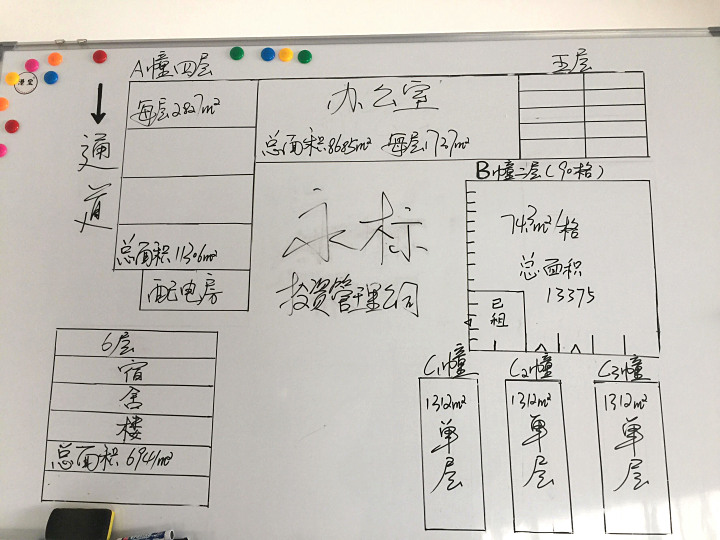 A幢四层
五层
每层2827m²
办公室
总面积8685m² 每层1737m²
通道
B幢二层(90格)
74.3m²/格
总面积
13375
已租
永标
投资管理公司
总面积11306m²
配电房
6层
宿
舍
楼
总面积6941m²
C1幢
C2幢
C3幢
1312m²
单层
1312m²
单层
1312m²
单层